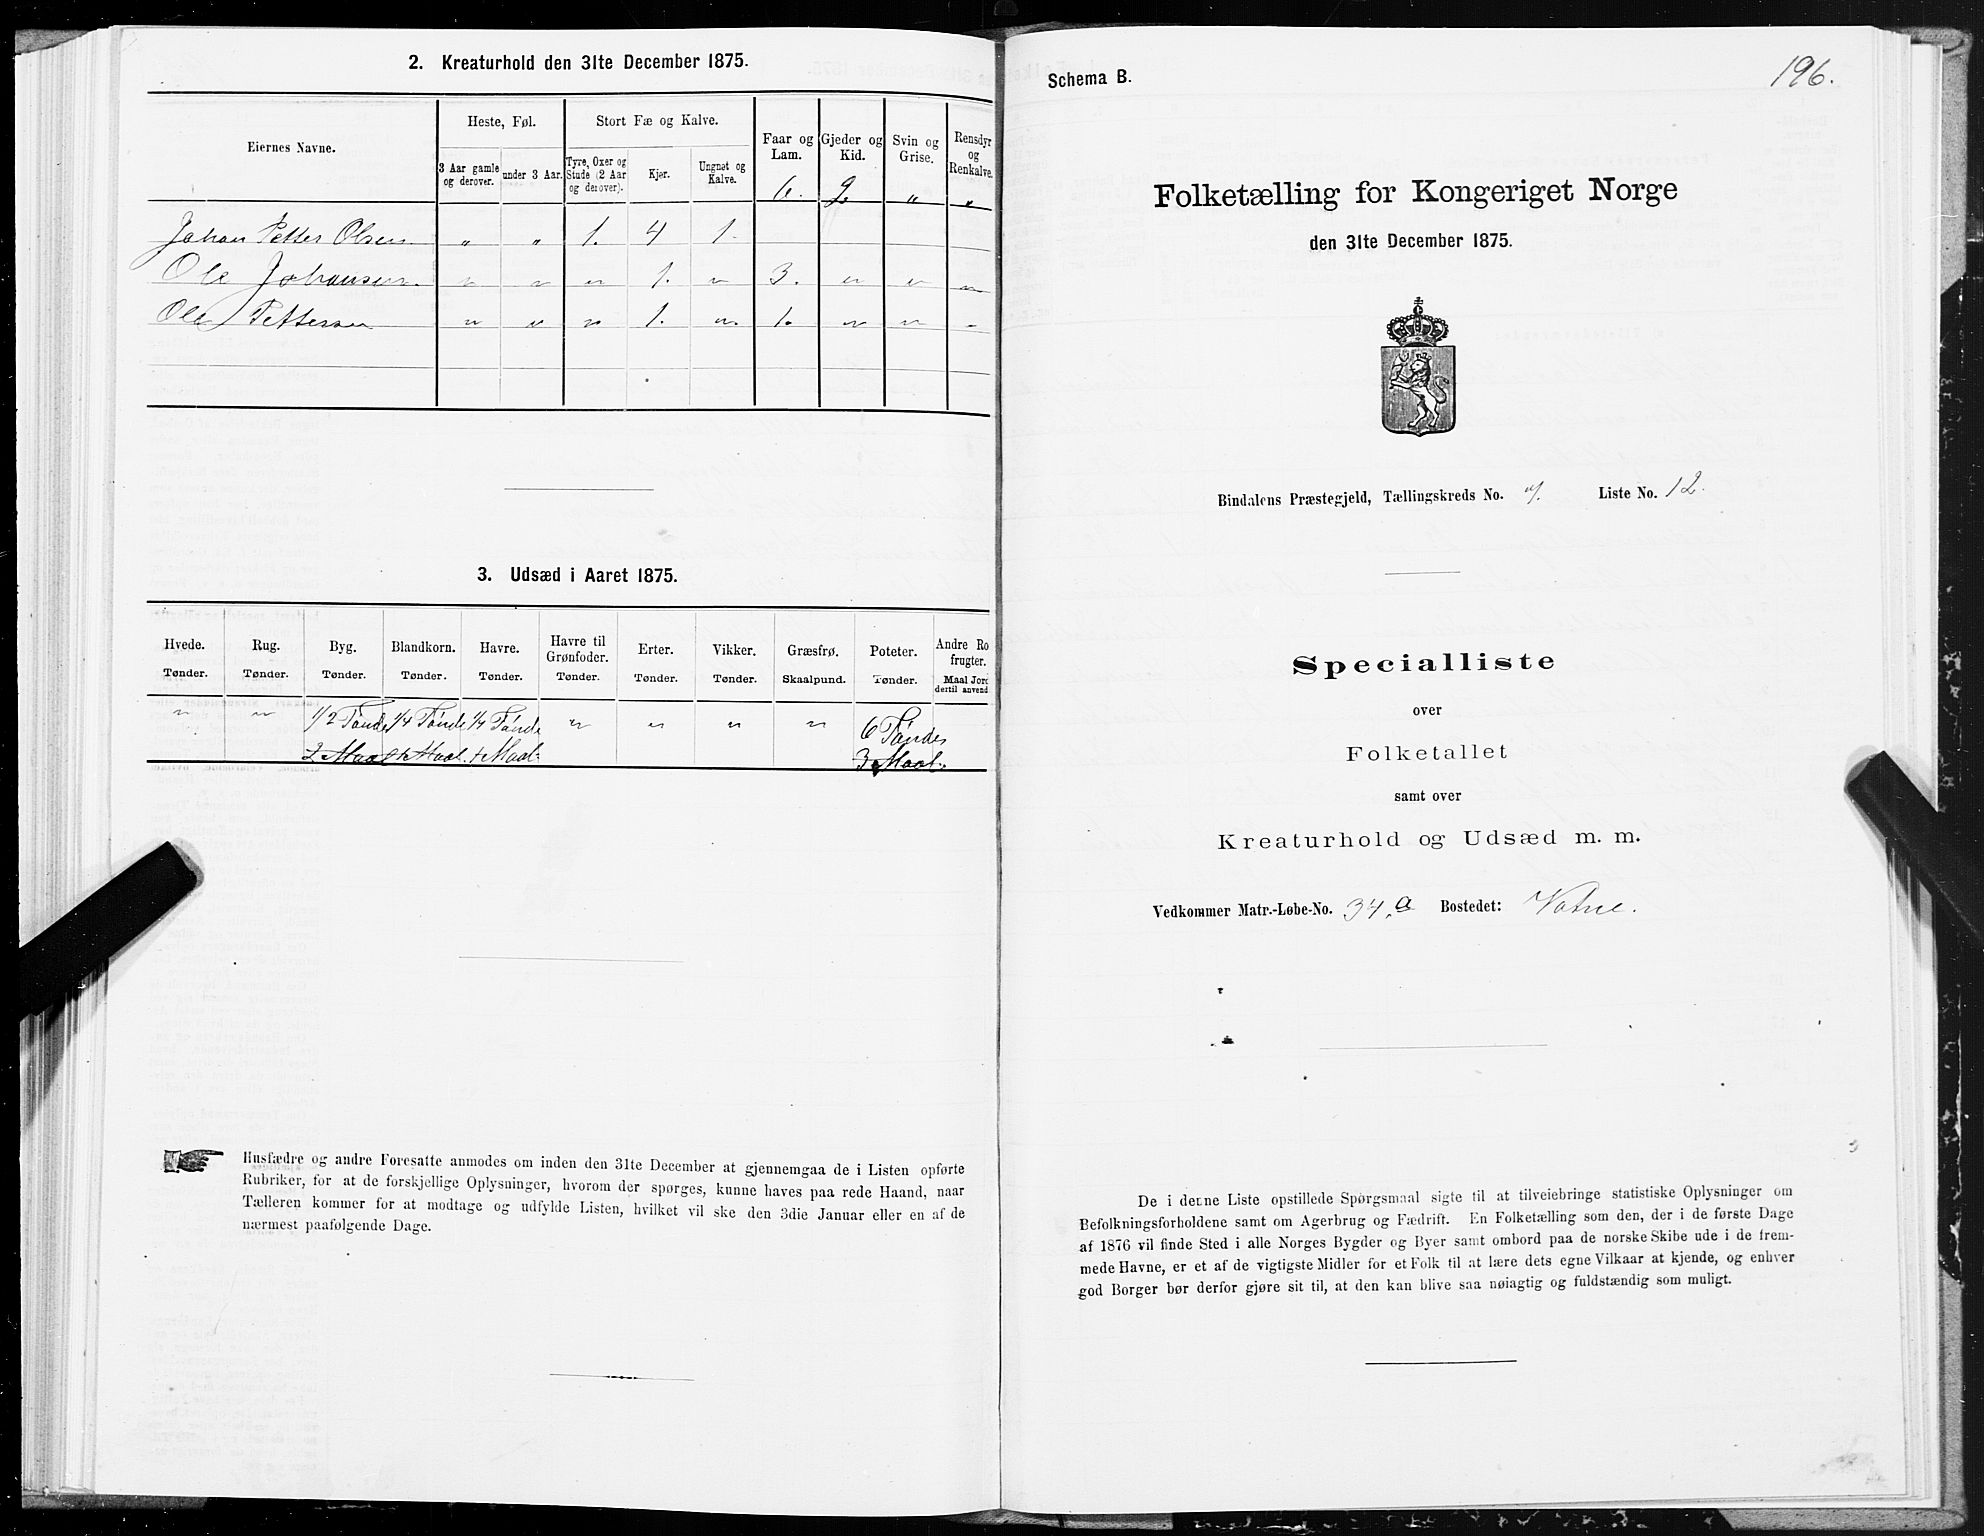 2. Kreaturhold den 31te December 1875.
Eiernes Navne.
Heste, Føl.
Stort Fæ og Kalve.
Faar og Lam.
Gjeder og Kid.
Svin og Grise.
Rensdyr og Renkalve.
3 Aar gamle og derover.
under 3 Aar.
Tyre, Oxer og Stude (2 Aar og derover).
Kjør.
Ungnøt og Kalve.
6. 2 " "
Johan Petter Olsen " " 1. 4 1.
Ole Johansen. " " " 1. " 3. " " "
Ole Pettersen " " " 1. " 1. " " "
3. Udsæd i Aaret 1875.
Hvede. Tønder.
Rug. Tønder.
Byg. Tønder.
Blandkorn. Tønder.
Havre. Tønder.
Havre til Grønfoder. Tønder.
Erter. Tønder.
Vikker. Tønder.
Græsfrø. Skaalpund.
Poteter. Tønder.
Andre Ro frugter. Maal Jord dertil anvend
" " 1/2 Tønde 1/4 Tønde 1/4 Tønde " " " " 6 Tønder
2 Maal Maal. Maal. 3 Maal.
Husfædre og andre Foresatte anmodes om inden den 31te December at gjennemgaa de i Listen opførte
Rubriker, for at de forskjellige Oplysninger, hvorom der spørges, kunne haves paa rede Haand, naar
Tælleren kommer for at modtage og udfylde Listen, hvilket vil ske den 3die Januar eller en af de
nærmest paafølgende Dage.
Schema B.
196.
Folketælling for Kongeriget Norge
den 31te December 1875.
Bindalens Præstegjeld, Tællingskreds No. Liste No. 12.
Specialliste
over
Folketallet
samt over
Kreaturhold og Udsæd m. m.
Vedkommer Matr.-Løbe-No. 34.a Bostedet: Vatne.
De i denne Liste opstillede Spørgsmaal sigte til at tilveiebringe statistiske Oplysninger om
Befolkningsforholdene samt om Agerbrug og Fædrift. En Folketælling som den, der i de første Dage
af 1876 vil finde Sted i alle Norges Bygder og Byer samt ombord paa de norske Skibe ude i de frem-
mede Havne, er et af de vigtigste Midler for et Folk til at lære dets egne Vilkaar at kjende, og enhver
god Borger bør derfor gjøre sit til, at den kan blive saa nøiagtig og fuldstændig som muligt.